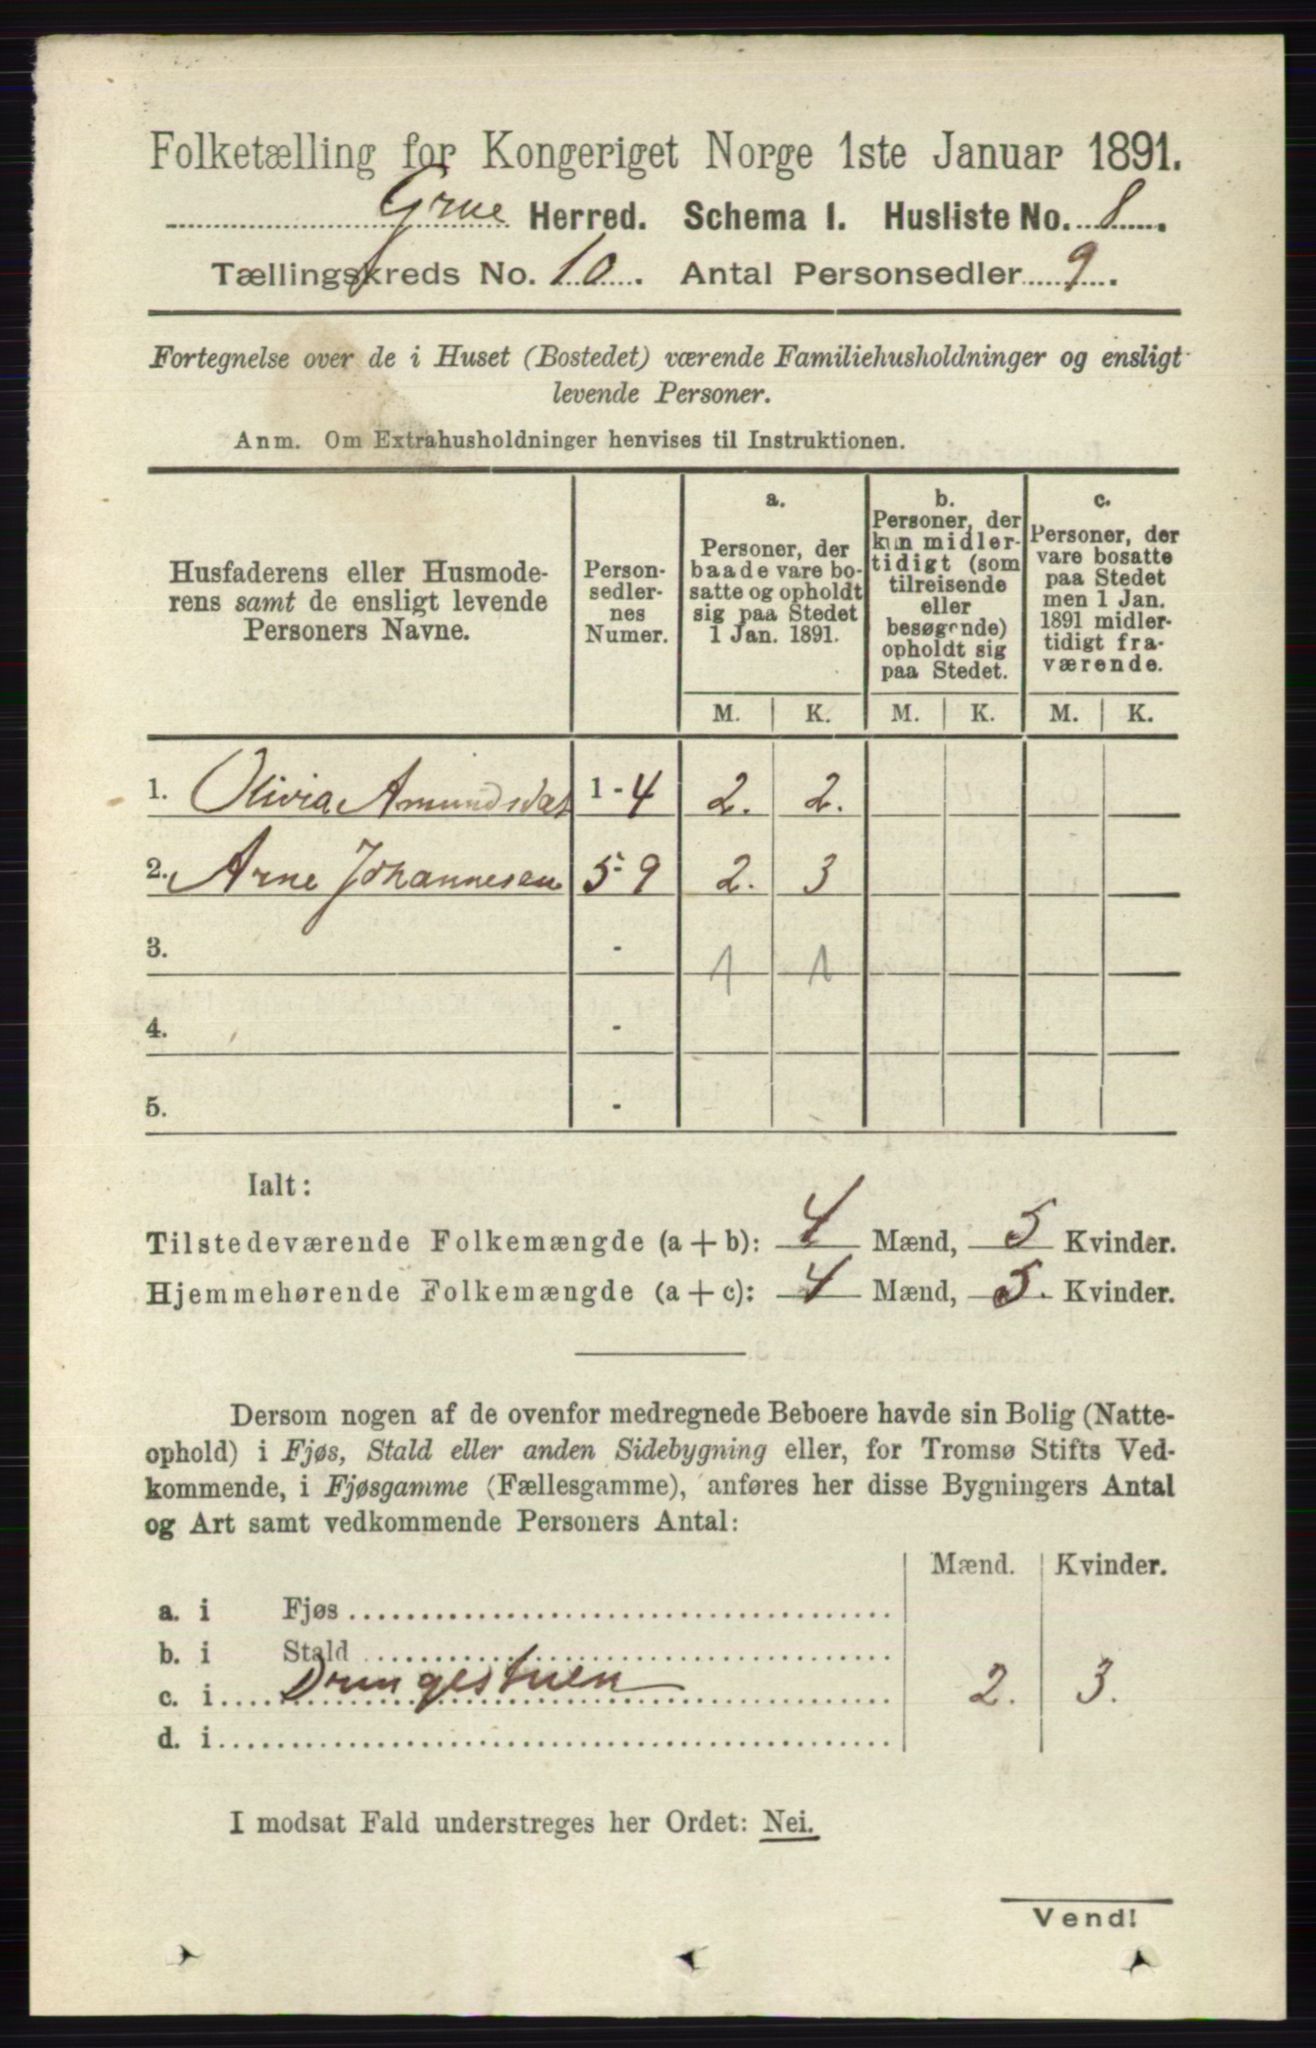 Folketælling for Kongeriget Norge 1ste Januar 1891.
Grue Herred. Schema I. Husliste No. 8.
Tællingskreds No. 10. Antal Personsedler 9.
Fortegnelse over de i Huset (Bostedet) værende Familiehusholdninger og ensligt
levende Personer.
Anm. Om Extrahusholdninger henvises til Instruktionen.
Husfaderens eller Husmode-
rens samt de ensligt levende
Personers Navne.
Person-
sedler-
nes
Numer.
a.
Personer, der
baade vare bo-
satte og opholdt
sig paa Stedet
1 Jan. 1891.
b.
Personer, der
kun midler-
tidigt (som
tilreisende
eller
besøgende)
opholdt sig
paa Stedet.
c.
Personer, der
vare bosatte
paa Stedet
men 1 Jan.
1891 midler-
tidigt fra-
værende.
M. K. M. K. M. K.
1. Olivia Amundsdat 1 - 4 2. 2.
2. Arne Johannesen 5 - 9 2. 3
3. - 1 1
4. -
5. -
Ialt:
Tilstedeværende Folkemængde (a + b): 4 Mænd, 5 Kvinder.
Hjemmehørende Folkemængde (a + c): 4 Mænd, 5. Kvinder.
Dersom nogen af de ovenfor medregnede Beboere havde sin Bolig (Natte-
ophold) i Fjøs, Stald eller anden Sidebygning eller, for Tromsø Stifts Ved-
kommende, i Fjøsgamme (Fællesgamme), anføres her disse Bygningers Antal
og Art samt vedkommende Personers Antal:
Mænd. Kvinder.
a. i Fjøs
b. i Stald
c. i Drengestuen 2. 3.
d. i
I modsat Fald understreges her Ordet: Nei.
Vend!